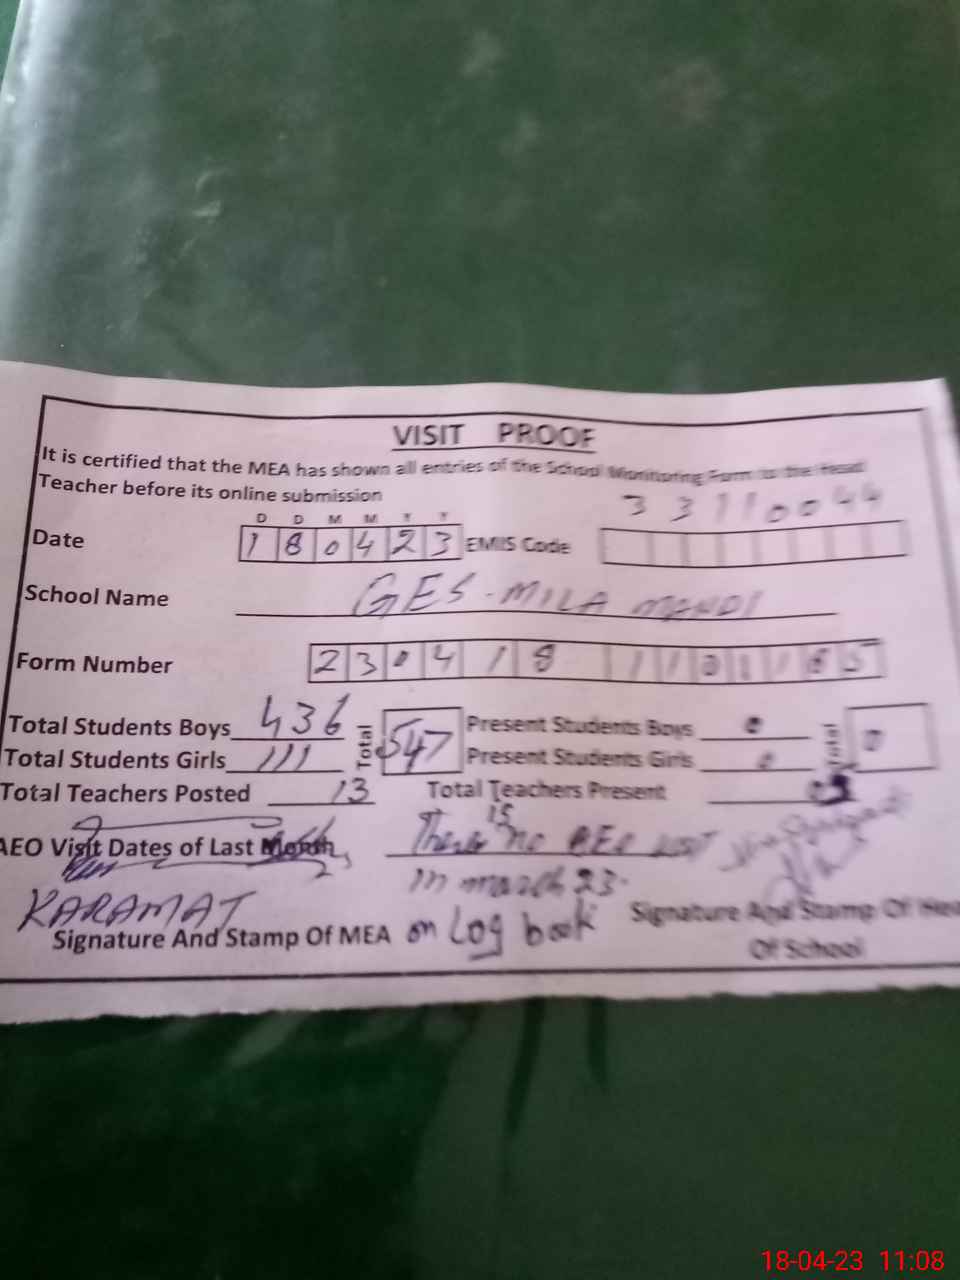 VISIT PROOF
It is certified that the MEA has shown all entries of the School Monitoring Form to the Head
Teacher before its online submission
33110044
D D M M Y Y
Date 180423 EMIS Code
School Name GES. MILA MANDI
Form Number 230418
Total Students Boys 436 Total 547 Present Students Boys 0 Total 0
Total Students Girls 111 Present Students Girls 0
Total Teachers Posted 13 Total Teachers Present
AEO Visit Dates of Last Month There is no AEO visit
in march 23.
KARAMAT on Log book Signature And Stamp Of Head
Signature And Stamp Of MEA Of School
18-04-23 11:08